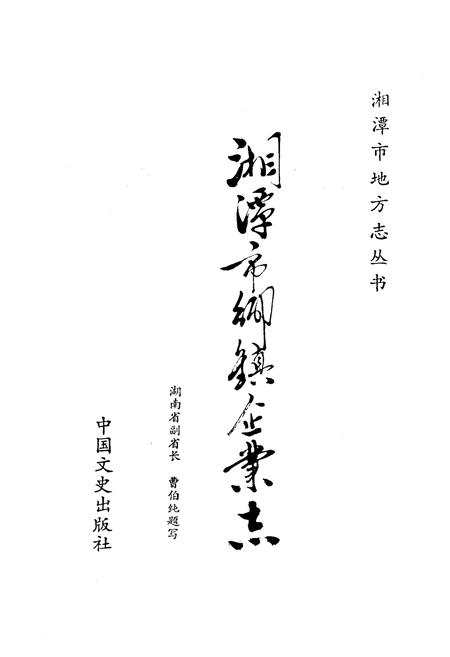 湘潭市地方志丛书
湘潭市乡镇企业志
湖南省副省长 曹伯纯题写
中国文史出版社